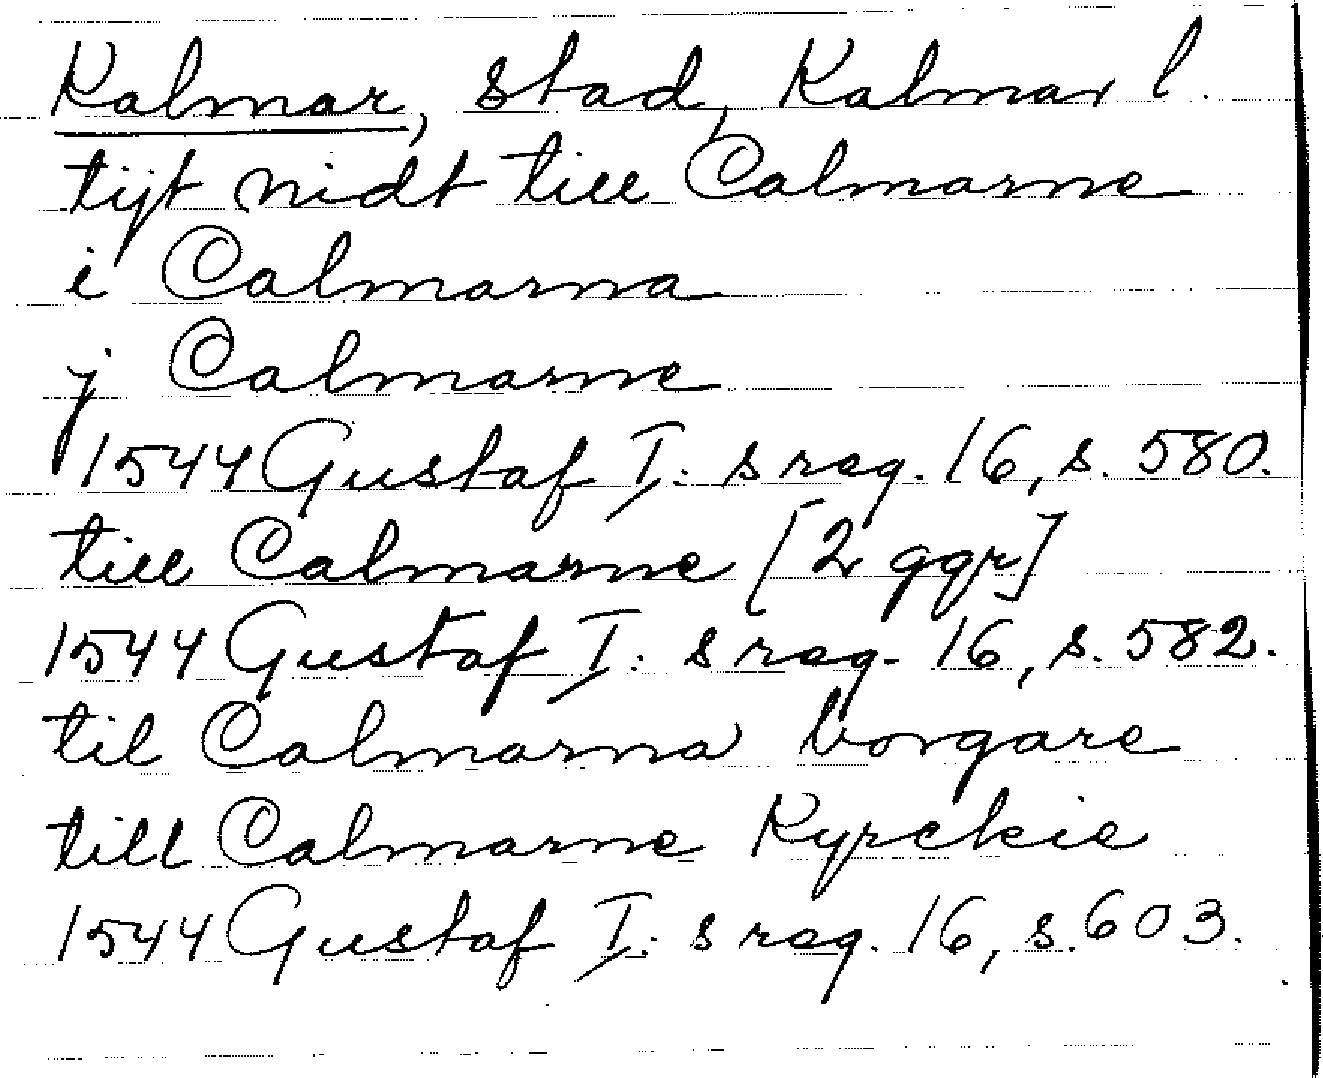 Kalmar, stad, Kalmar l.
tijt nidt till Calmarne
i Calmarna
j Calmarne
1544 Gustaf I:s reg. 16, s. 580.
till Calmarne [2 ggr]
1544 Gustaf I:s reg. 16, s. 582.
til Calmarna borgare
till Calmarne Kyrckie
1544 Gustaf I:s reg. 16, s. 603.